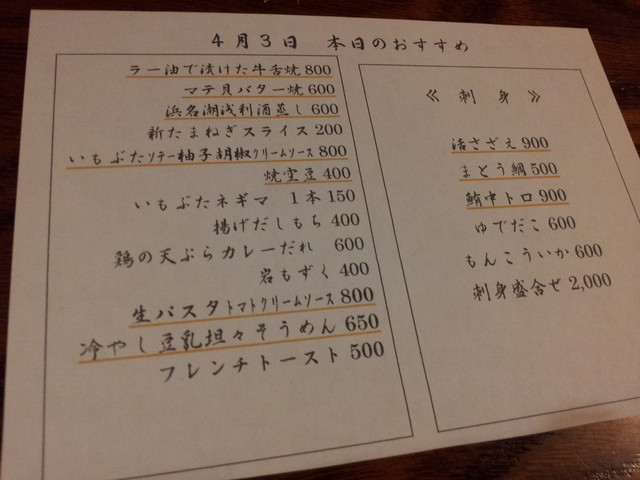 4月3日 本日のおすすめ
ラー油で漬けた牛舌焼 800
マテ貝バター焼 600
浜名湖浅利酒蒸し 600
新たまねぎスライス 200
いもぶたソテー柚子胡椒クリームソース 800
焼空豆 400
いもぶたネギマ 1本 150
揚げだしもち 400
鶏の天ぷらカレーだれ 600
岩もずく 400
生パスタトマトクリームソース 800
冷やし豆乳坦々そうめん 650
フレンチトースト 500
≪ 刺身 ≫
活さざえ 900
まとう鯛 500
鮪中トロ 900
ゆでだこ 600
もんこういか 600
刺身盛合せ 2,000